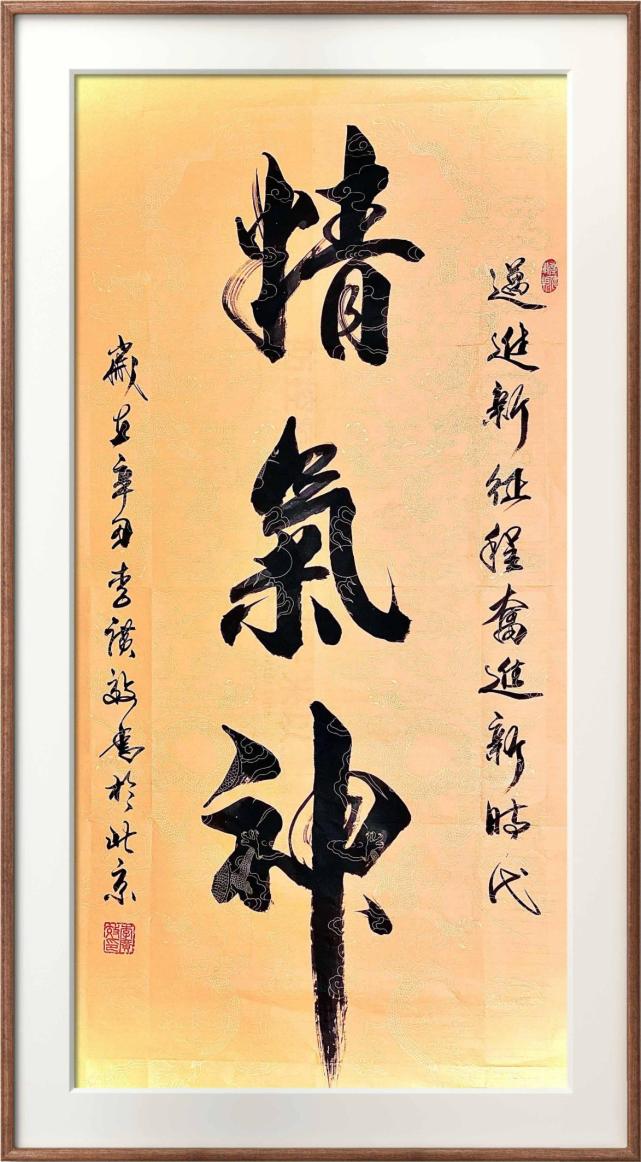 邁進新征程奮進新時代
精氣神
歲在辛丑李讃敏書於北京